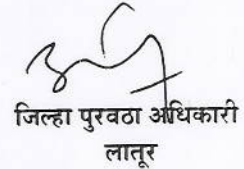 जिल्हा पुरवठा अधिकारी
लातूर